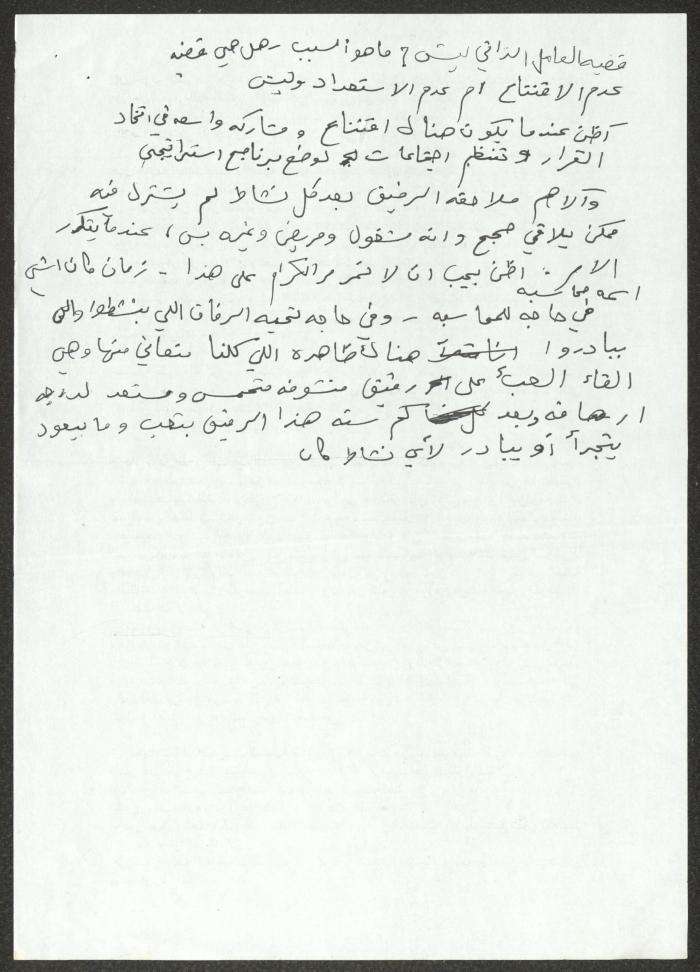 قضية العامل الذاتي ليش ؟ ما هو السبب وهل هي قضية
عدم الاقتناع ام عدم الاستعداد وليش
أظن عندما يكون هناك اقتناع ومشاركة واسعة في اتخاذ
القرار وتنظم اجتماعات لوضع برنامج استراتيجي
والاهم ملاحقة الرفيق بعد كل نشاط لم يشترك فيه
ممكن يلاقي حجج وانه مشغول ومريض وغيره بس ، عندما يتكرر
الامر . اظن يجب ان لا تمر مر الكرام على هذا - زمان كان اشي
اسمه محاسبه
في حاجه للمحاسبه - وفي حاجه لتحيه الرفاق اللي بنشطوا واللي
ببادروا هناك ظاهره اللي كلنا منعاني منها وهي
القاء العبأ على رفيق منشوفه متحمس ومستعد لدرجه
ارهاقه وبعد كم سنه هذا الرفيق بتعب وما بيعود
يتجرأ أو يبادر لأي نشاط كان